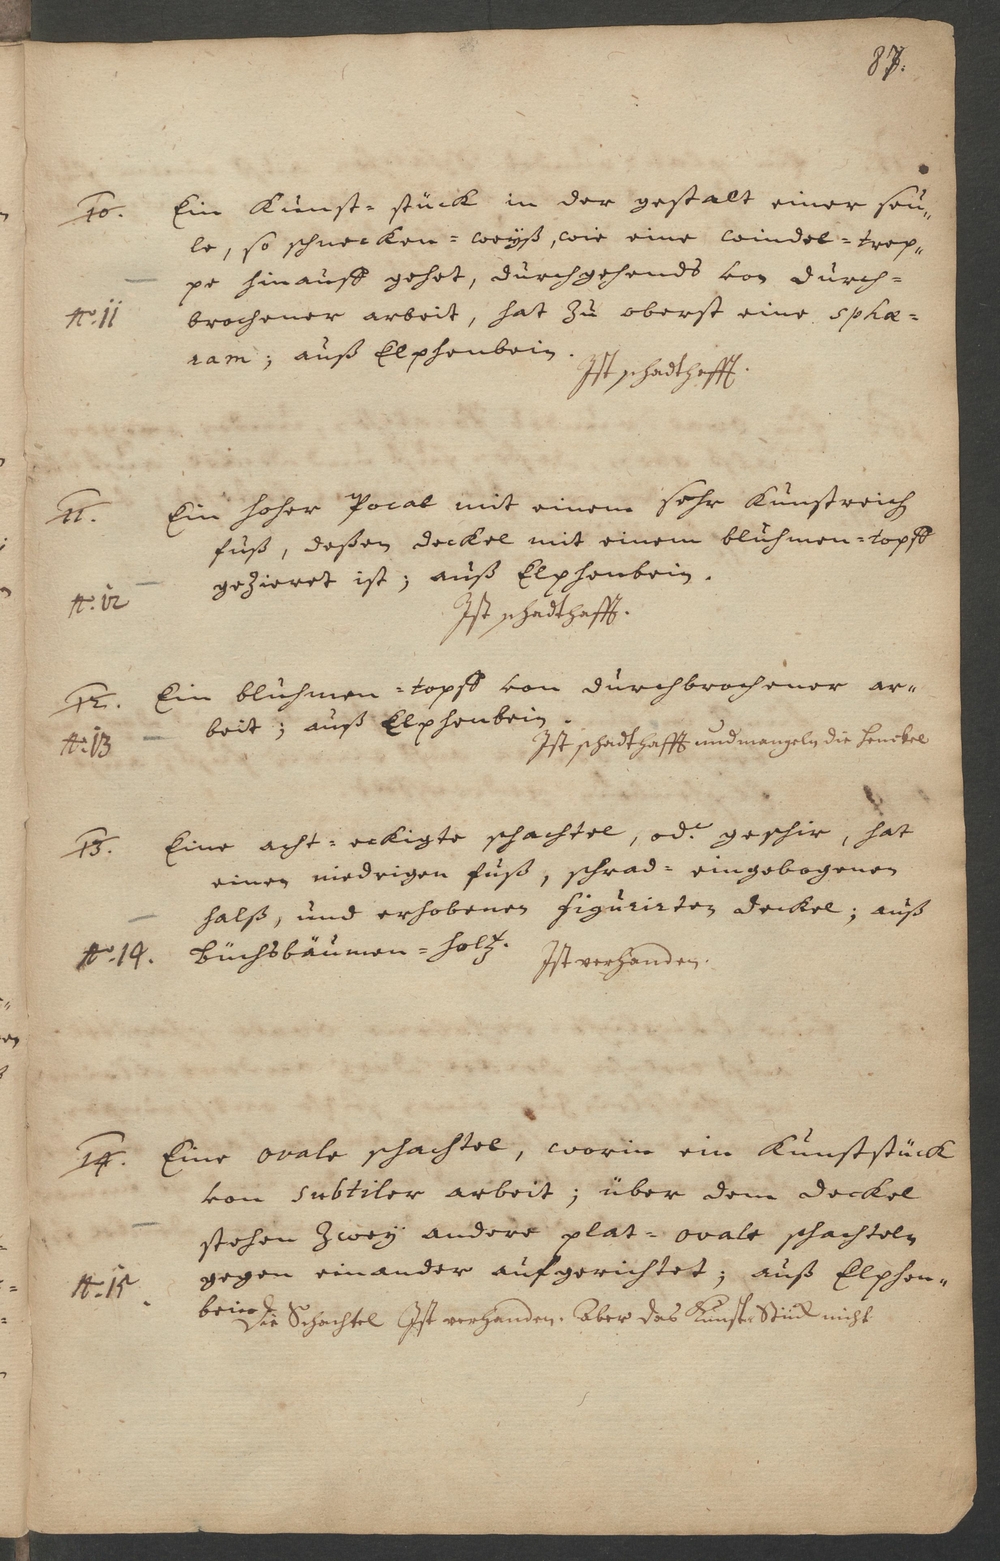 87.
10. Ein Kunst-stück in der gestalt einer seu„
le, so schnecken-weyß, wie eine windel-trep„
pe hinauff gehet, durchgehends von durch-
No. 11 brochener arbeit, hat zu oberst eine sphæ-
ram; auß Elphenbein.
Ist schadthafft.
11. Ein hoher Pocal mit einem sehr Kunstreich
fuß, deßen deckel mit einem bluhmen-topff
gezieret ist; auß Elphenbein.
No. 12
Ist schadthafft.
12. Ein bluhmen-topff von durchbrochener ar„
beit; auß Elphenbein.
No. 13 Ist schadthafft und mangeln die henckel
13. Eine acht-eckigte schachtel, od. geschir, hat
einen niedrigen fuß, schrad-eingebogenen
halß, und erhobenen figurirten deckel; auß
No. 14. Buchsbäumen-holtz. Ist verhanden.
14. Eine ovale schachtel, worin ein Kunststück
von subtiler arbeit; über dem deckel
stehen zwey andere plat-ovale schachteln
No. 15. gegen einander aufgerichtet; auß Elphen„
bein. Die Schachtel Ist verhanden. Aber das Kunst-Stück nicht